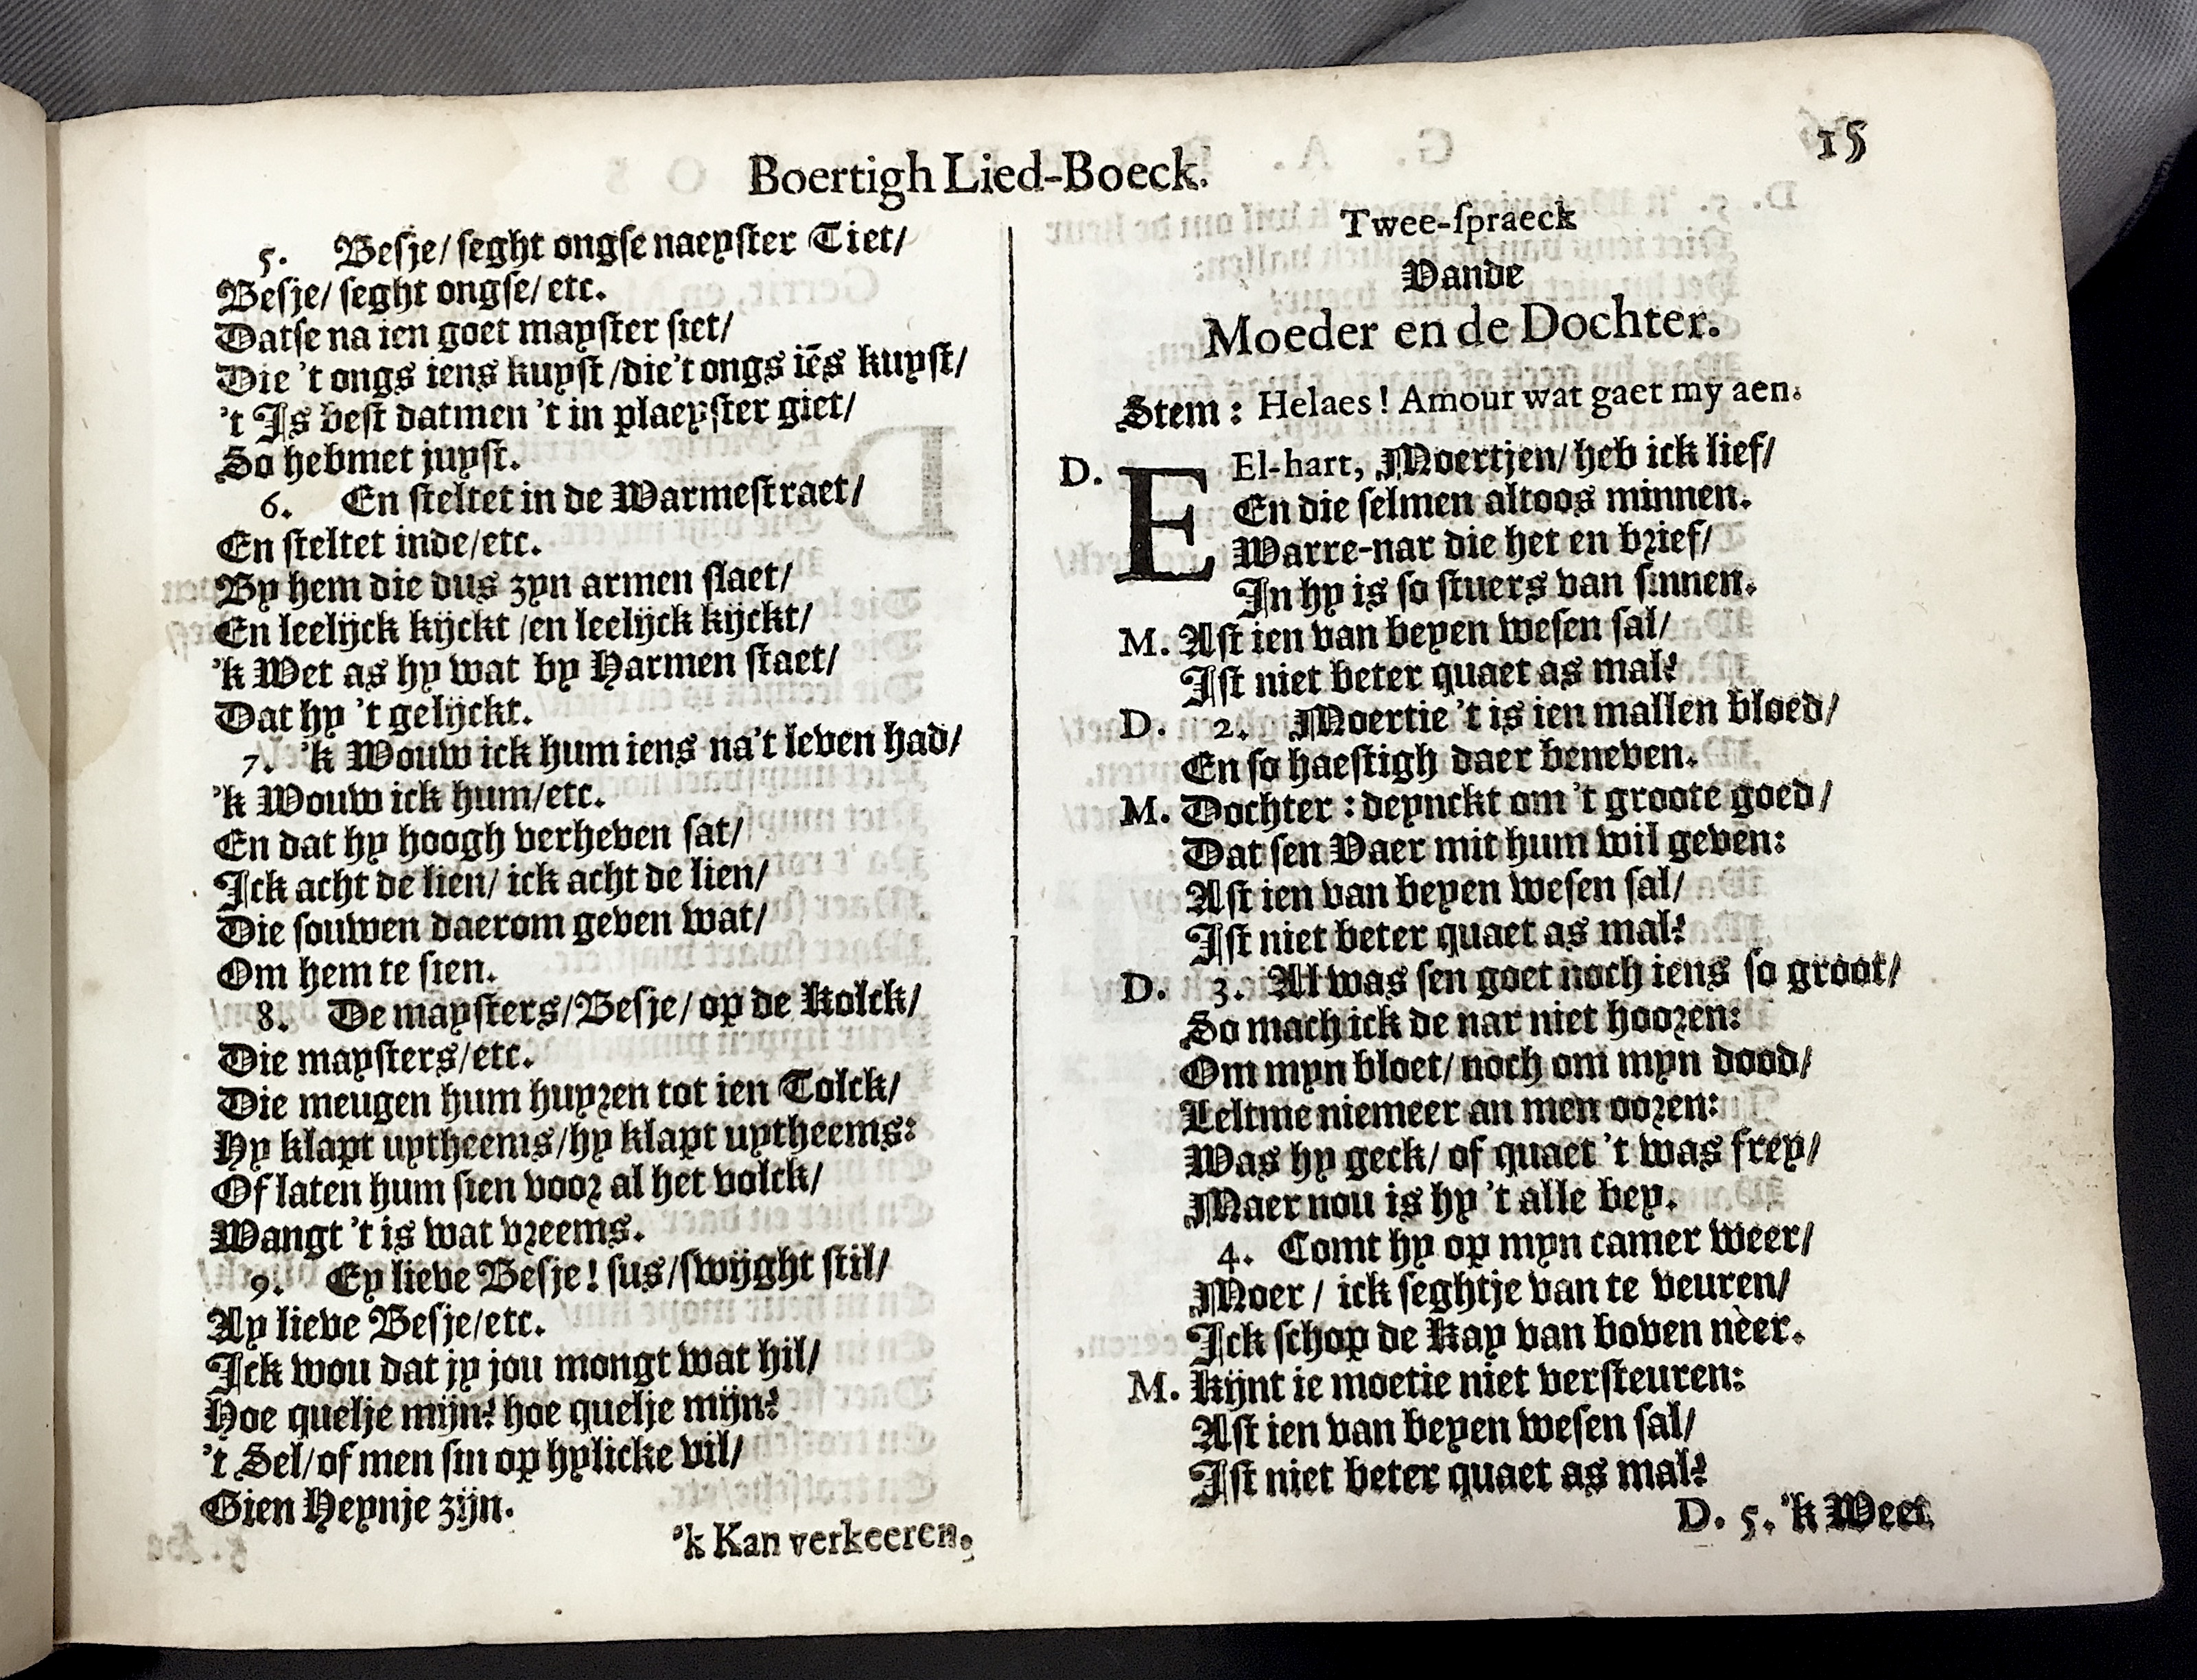 Boertigh Lied-Boeck.
15
5. Besje/ seght ongse naeyster Tiet/
Besje/ seght ongse/ etc.
Datse na ien goet mayster siet/
Die 't ongs iens kuyst/die't ongs iēs kuyst/
't Is best datmen 't in plaeyster giet/
So hebmet juyst.
6. En steltet in de Warmestraet/
En steltet inde/etc.
By hem die dus zyn armen slaet/
En leelijck kijckt /en leelijck kijckt/
'k Wet as hy wat by Harmen staet/
Dat hy 't gelijckt.
7. 'k Wouw ick hum iens na't leven had/
'k Wouw ick hum/etc.
En dat hy hoogh verheven sat/
Ick acht de lien/ ick acht de lien/
Die souwen daerom geven wat/
Om hem te sien.
8. De maysters/Besje/ op de Kolck/
Die maysters/etc.
Die meugen hum huyren tot ien Tolck/
Hy klapt uytheems/hy klapt uytheems:
Of laten hum sien voor al het volck/
Wangt 't is wat vreems.
9. Ey lieve Besje! sus/swijght stil/
Ay lieve Besje/etc.
Ick wou dat jy jou mongt wat hil/
Hoe quelje mijn? hoe quelje mijn?
't Sel/of men sin op hylicke vil/
Gien Heynje zijn.
'k Kan verkeeren.
Twee-spraeck
Vande
Moeder en de Dochter.
Stem: Helaes! Amour wat gaet my aen.
D. EEl-hart, Moertjen/ heb ick lief/
En die selmen altoos minnen.
Warre-nar die het en brief/
In hy is so stuers van sinnen.
M. Ast ien van beyen wesen sal/
Ist niet beter quaet as mal?
D. 2. Moertie 't is ien mallen bloed/
En so haestigh daer beneven.
M. Dochter: deynckt om 't groote goed/
Dat sen Vaer mit hum wil geven:
Ast ien van beyen wesen sal/
Ist niet beter quaet as mal?
D. 3. Al was sen goet noch iens so groot/
So mach ick de nar niet hooren:
Om myn bloet/ noch om myn dood/
Leltme niemeer an men ooren:
Was hy geck/ of quaet 't was frey/
Maer nou is hy 't alle bey.
4. Comt hy op myn camer weer/
Moer/ ick seghtje van te veuren/
Ick schop de Kay van boven nèer.
M. Kijnt ie moetie niet versteuren:
Ast ien van beyen wesen sal/
Ist niet beter quaet as mal?
D. 5. 'k Weet